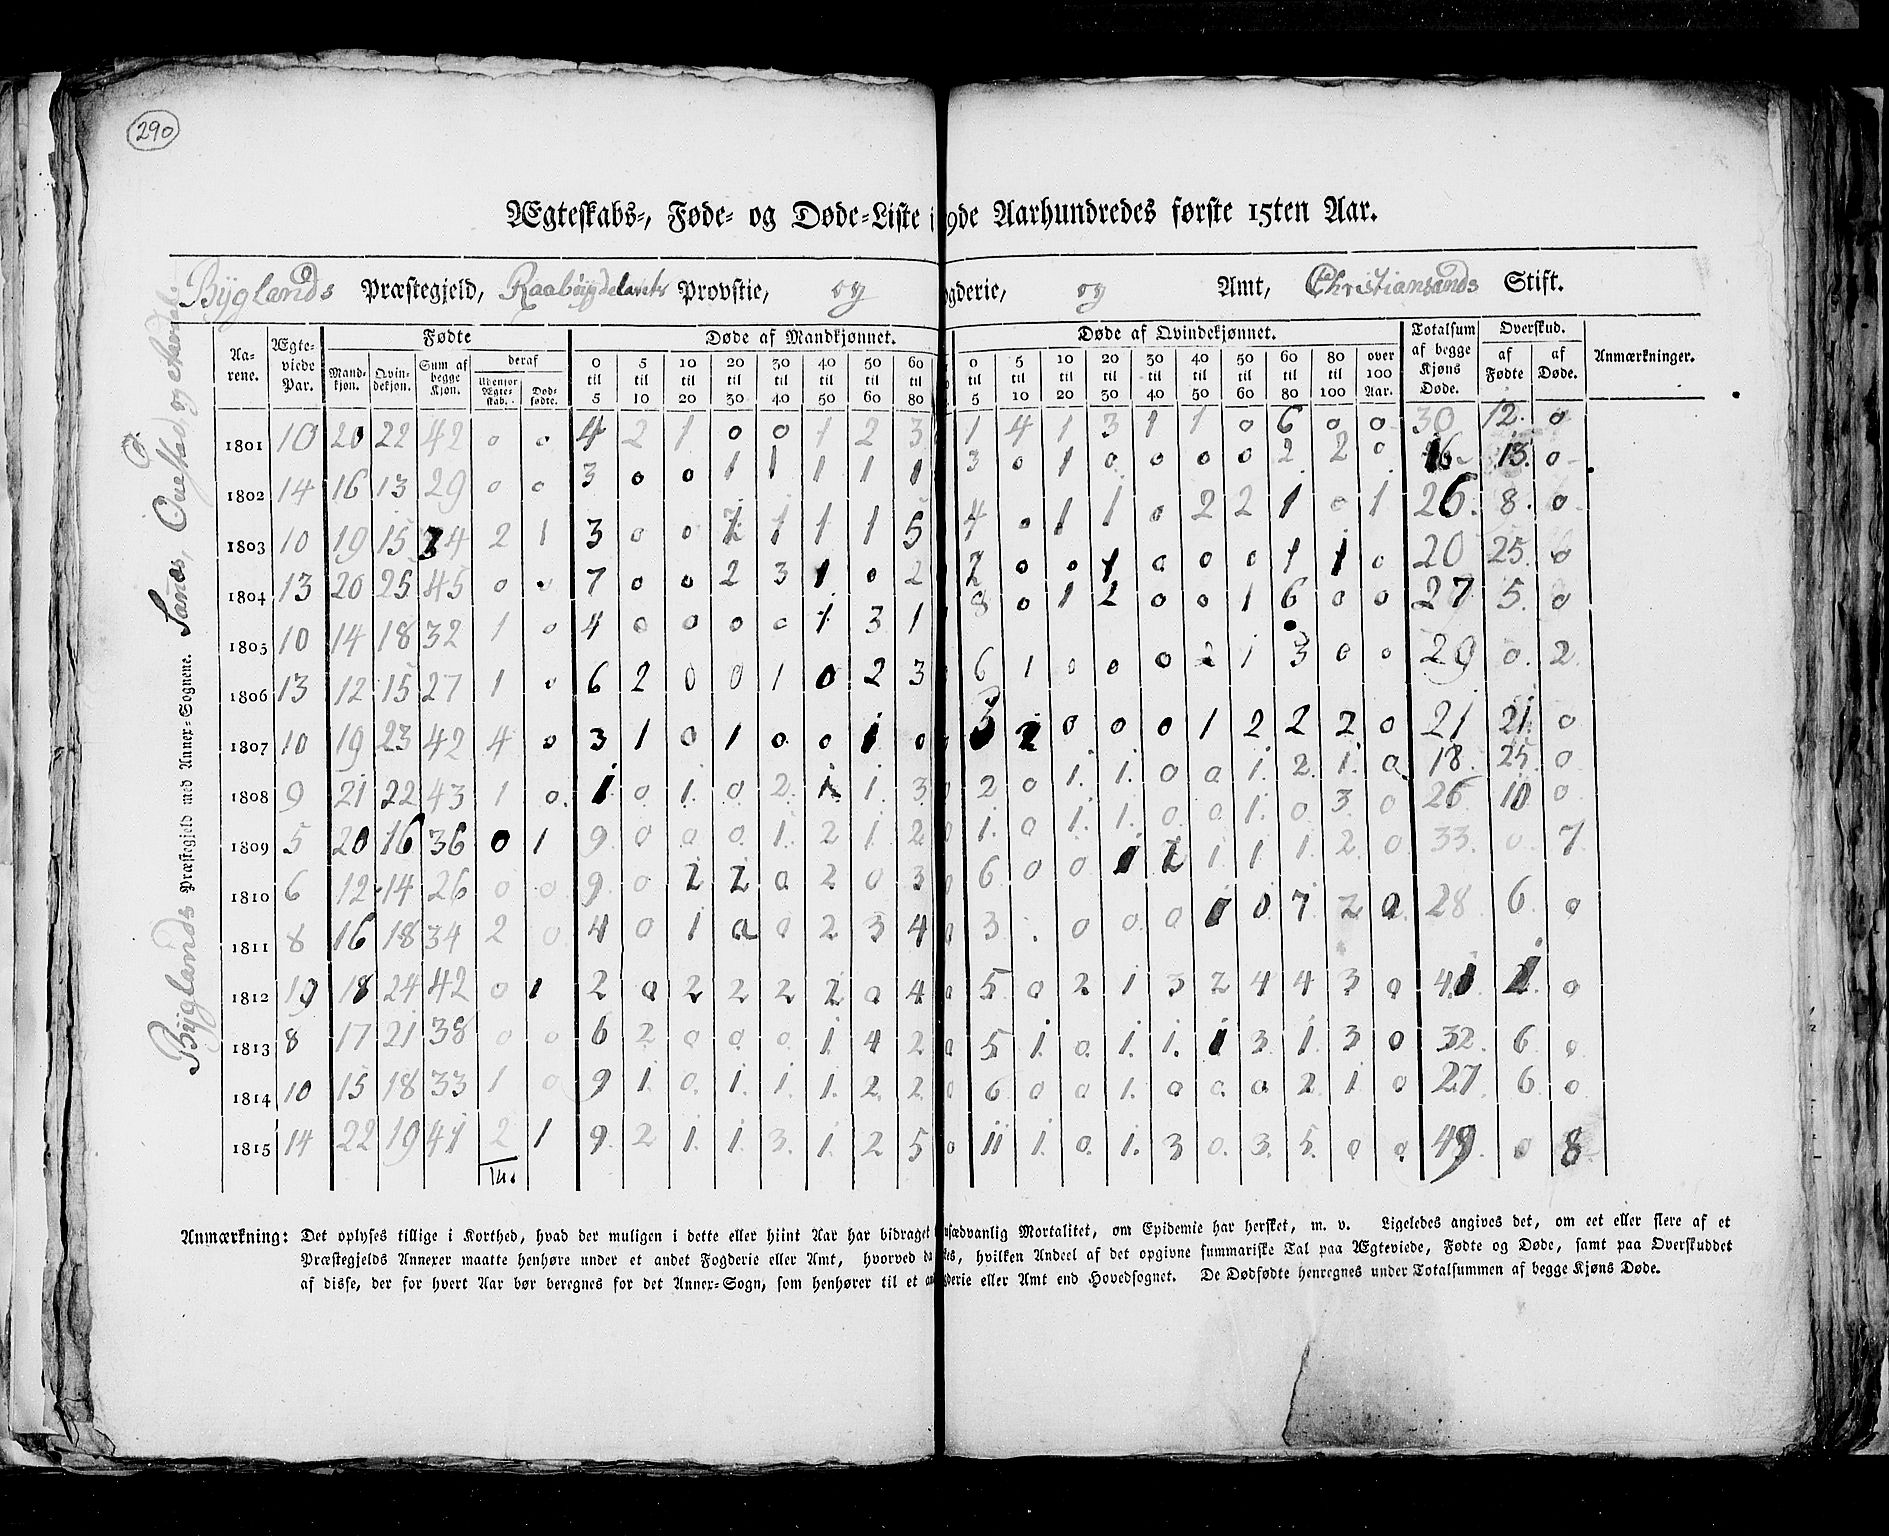 290
Ægteskabs-, Føde- og Døde-Liste i 9de Aarhundredes første 15ten Aar.
Byglands Præstegjeld, Raabøygdelavets Provstie, og gderie, og Amt, Christiansands Stift.
Byglands Præstegjeld med Annex-Sognene. Sanes, og
Aa-rene. Ægte-viede Par. Fødte Døde af Mandkjønnet. Døde af Qvindekjønnet. Totalsum af begge Kjøns Døde. Overskud. Anmærkninger.
Mand-kjøn. Qvin-dekjøn. Sum af begge Kjøn. deraf Udenfor Ægte-skab. Død-fødte. 0 til 5 5 til 10 10 til 20 20 til 30 30 til 40 40 til 50 50 til 60 60 til 80 0 til 5 5 til 10 10 til 20 20 til 30 30 til 40 40 til 50 50 til 60 60 til 80 80 til 100 over 100 Aar. af Fødte af Døde.
1801 10 20 22 42 0 0 4 2 1 0 0 1 2 3 1 4 1 3 1 1 0 6 0 0 30 12. 0
1802 14 16 13 29 0 0 3 0 0 1 1 1 1 1 3 0 1 0 0 0 0 2 2 0 16 13. 0
1803 10 19 15 34 2 1 3 0 0 1 1 1 5 4 0 1 1 0 2 2 1 0 1 26. 8. 0
1804 13 20 25 45 0 0 7 0 0 2 3 1 0 2 2 0 0 1 0 0 0 1 1 0 20 25. 0
1805 10 14 18 32 1 0 4 0 0 0 0 1 3 1 8 0 1 2 0 0 1 6 0 0 27 5. 0
1806 13 12 15 27 1 0 6 2 0 0 1 0 2 3 6 1 0 0 0 2 1 3 0 0 29 0. 2
1807 10 19 23 42 4 0 3 1 0 1 0 0 1 0 3 2 0 0 0 1 2 2 2 0 21 21. 0
1808 9 21 22 43 1 0. 1 0 1. 0 2. 1. 1. 3 2 0 1. 1. 0 0 1. 2. 1. 0 18. 25. 0
1809 5 20 16 36 0 1 9 0 0 0 1. 2 1. 2 1. 0 1. 1. 0 0 1. 0 3. 0 26 10 0
1810 6 12 14 26 0 0 9. 0 2 0 3 6 0 0 1 1 1 1 2. 0 33. 0. 7
1811 8 16 18 34 2 0 4 0 1 0 0 2 3 4 0 3. 0 0 0 1 0 7 2 0 28 6. 0
1812 10 18 24 42 0 1 2 0 2 2 2 0 4 0 5. 0 2 1 3 2 4 4 3 0 41 0
1813 8 17 21 38 0 0 6 2 0 0 0 1. 4 2 0 5 1. 0 1. 1. 1 3. 1. 3 0 32. 6. 0
1814 10 15 18 33 1 0 9 1. 0. 1. 1. 1. 2 2. 0 6 0 0 1. 0 0. 0 2 1 0 27. 6 0
1815 14 22 19 41 2 1 9. 2 1. 1. 3. 1. 2 5 0 11 1. 0. 1. 3 0. 3. 5. 0 0 49. 0 8.
Anmærkning: Det oplyses tillige i Korthed, hvad der muligen i dette eller hiint Aar har bidraget usædvanlig Mortalitet, om Epidemie har hersket, m. v. Ligeledes angives det, om eet eller flere af et
Præstegjelds Annexer maatte henhøre under et andet Fogderie eller Amt, hvorved da es, hvilken Andeel af det opgivne summariske Tal paa Ægteviede, Fødte og Døde, samt paa Overskuddet
af disse, der for hvert Aar bør beregnes for det Annex-Sogn, som henhører til et an gderie eller Amt end Hovedsognet. De Dødfødte henregnes under Totalsummen af begge Kjøns Døde.